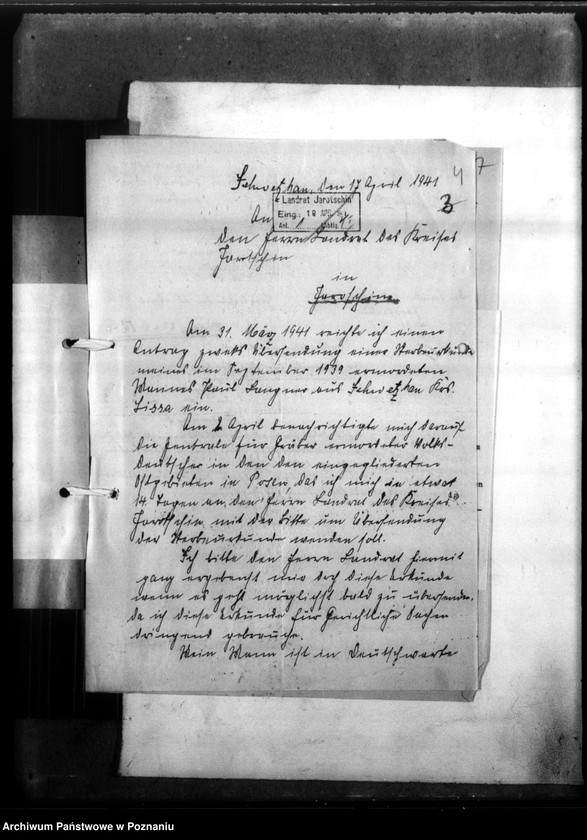 Schwetzkau, den 17 April 1941
4 7
3
Landrat Jarotschin
Eing.: 18. APR.
An
den Herrn Landrat des Kreises
Jarotschin
in
Jarotschin
Am 31. März 1941 reichte ich einen
Antrag zwecks Übersendung einer Sterbeurkunde
meines im September 1939 ermordeten
Mannes Paul Langner aus Schwetzkau Krs.
Lissa ein.
Am April benachrichtigte mich darauf
die Zentrale für Gräber ermordeter Volks-
deutscher in den den eingegliederten
Ostgebieten in Posen, das ich mich in etwa
14 Tagen an den Herrn Landrat des Kreises
Jarotschin mit der Bitte um Übersendung
der Sterbeurkunde wenden soll.
Ich bitte den Herrn Landrat hiermit
ganz ergebenst mir doch diese Urkunde
wenn es geht möglichst bald zu übersenden.
da ich diese Urkunde für Gerichtliche Sachen
dringend gebrauche.
Mein Mann ist in Deutschwerke
Archiwum Państwowe w Poznaniu